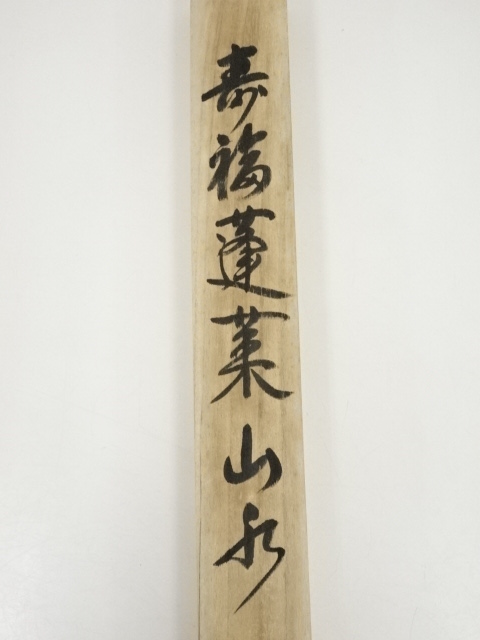 寿福蓬莱山水